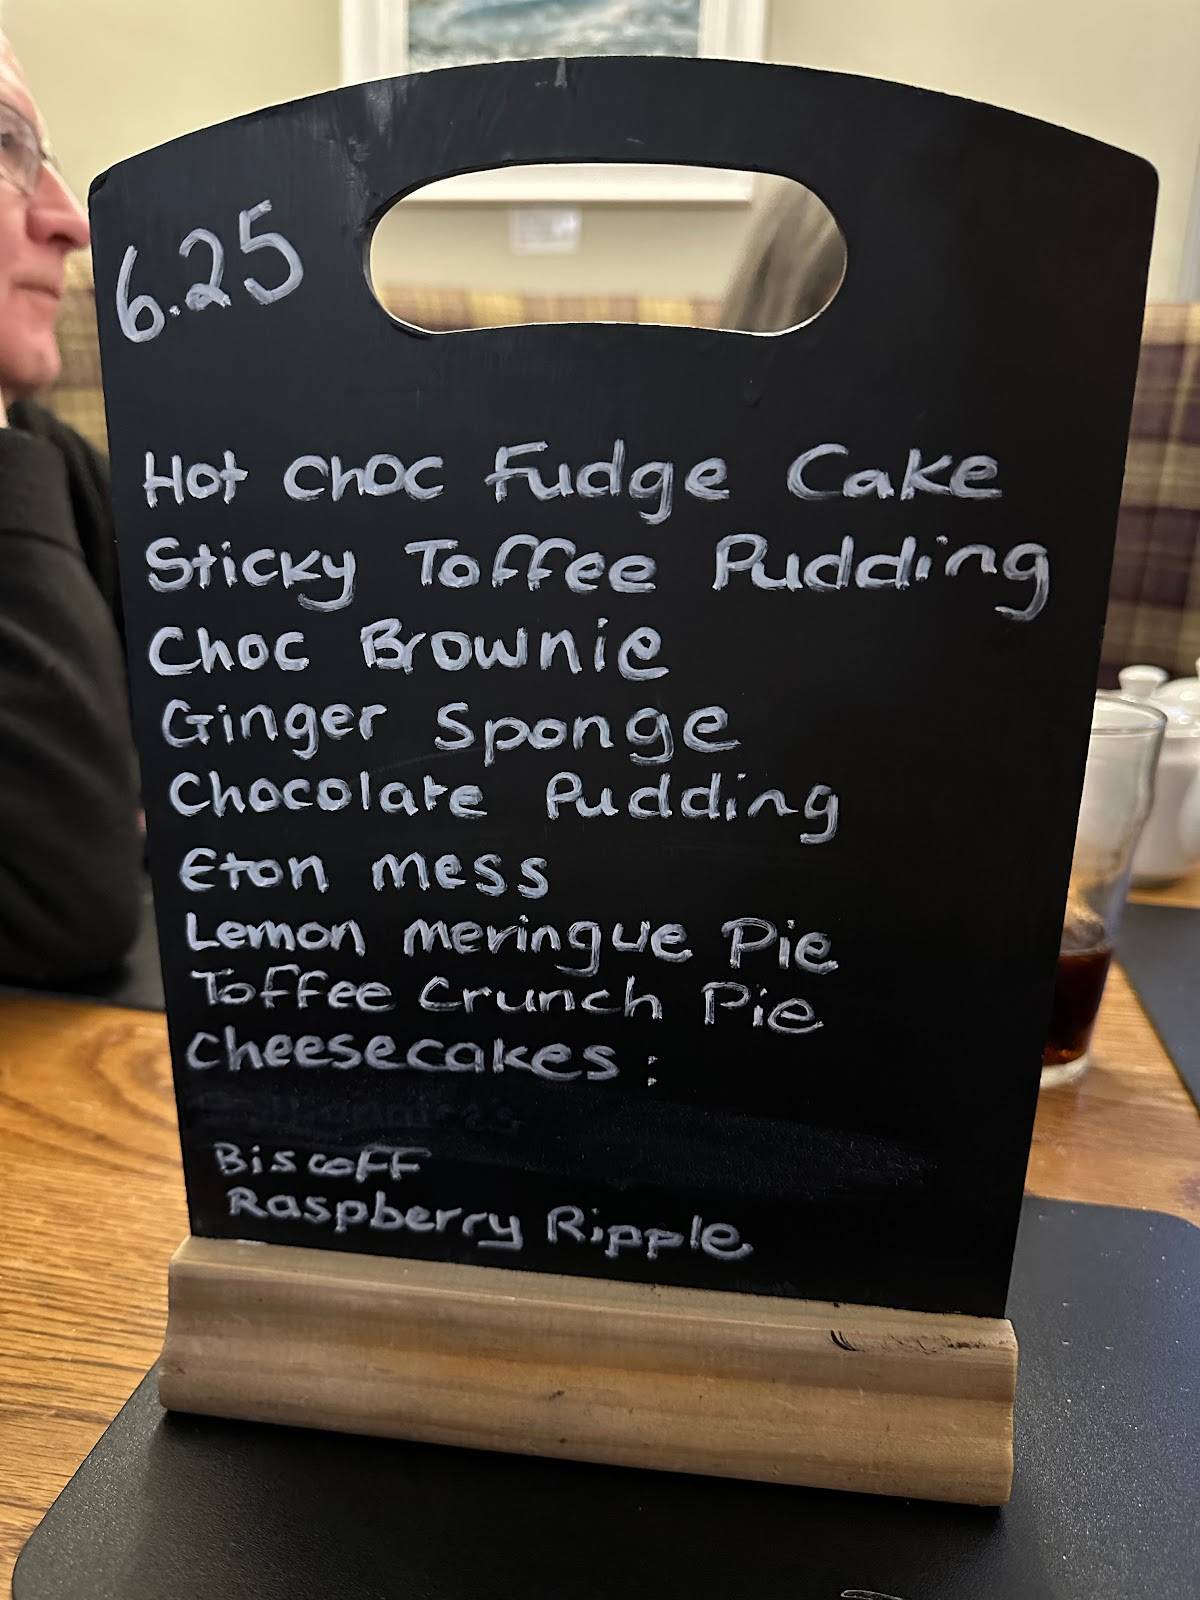 6.25
Hot Choc Fudge Cake
Sticky Toffee Pudding
Choc Brownie
Ginger Sponge
Chocolate Pudding
Eton mess
Lemon meringue Pie
Toffee Crunch Pie
Cheesecakes:
Biscoff
Raspberry Ripple